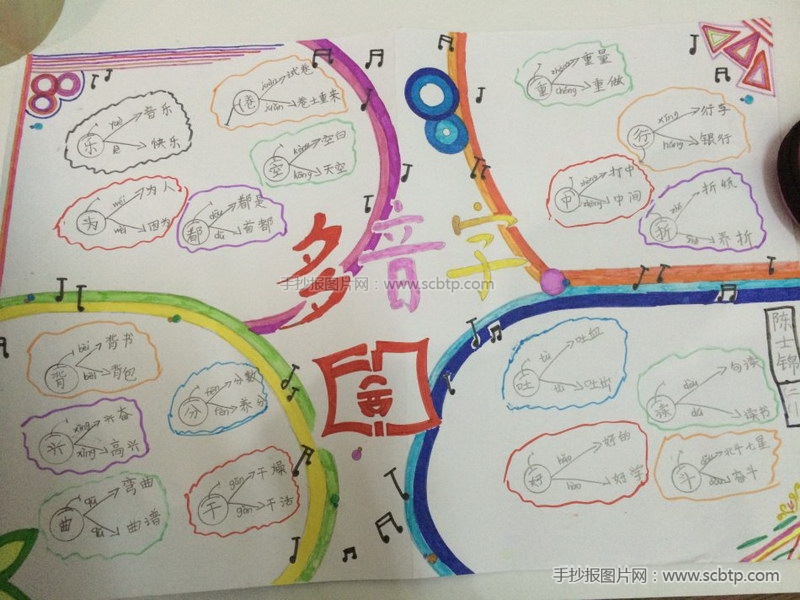 乐
yuè
音乐
lè
快乐
卷
试卷
juǎn
卷土重来
空
空白
kōng
天空
为
wéi
为人
wèi
因为
都
dōu
都是
dū
首都
重
重量
chóng
重做
行
xíng
行车
háng
银行
中
打中
中间
折
折纸
折
多音字
手抄报图片网：www.scbtp.com
背
bèi
背书
bēi
背包
分
fèn
分数
fēn
养分
兴
xīng
兴奋
xìng
高兴
曲
qū
弯曲
qǔ
曲谱
干
gān
干燥
gàn
干活
吐
吐血
吐出
读
dòu
句读
dú
读书
好
hǎo
好的
hào
好学
斗
dǒu
北斗七星
奋斗
陈士锦
手抄报图片网：www.scbtp.com